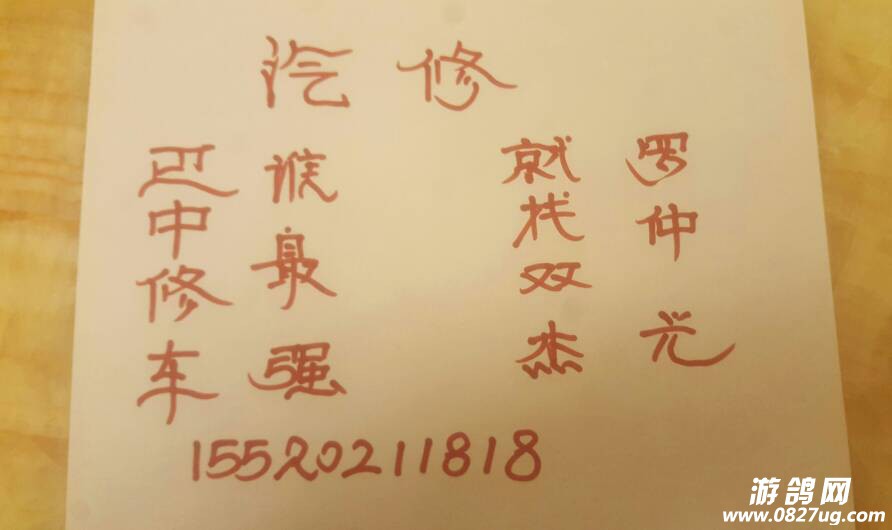 汽修
巴中修车
谁最强
就找双杰
罗仲光
15520211818
游鸽网
www.0827ug.com